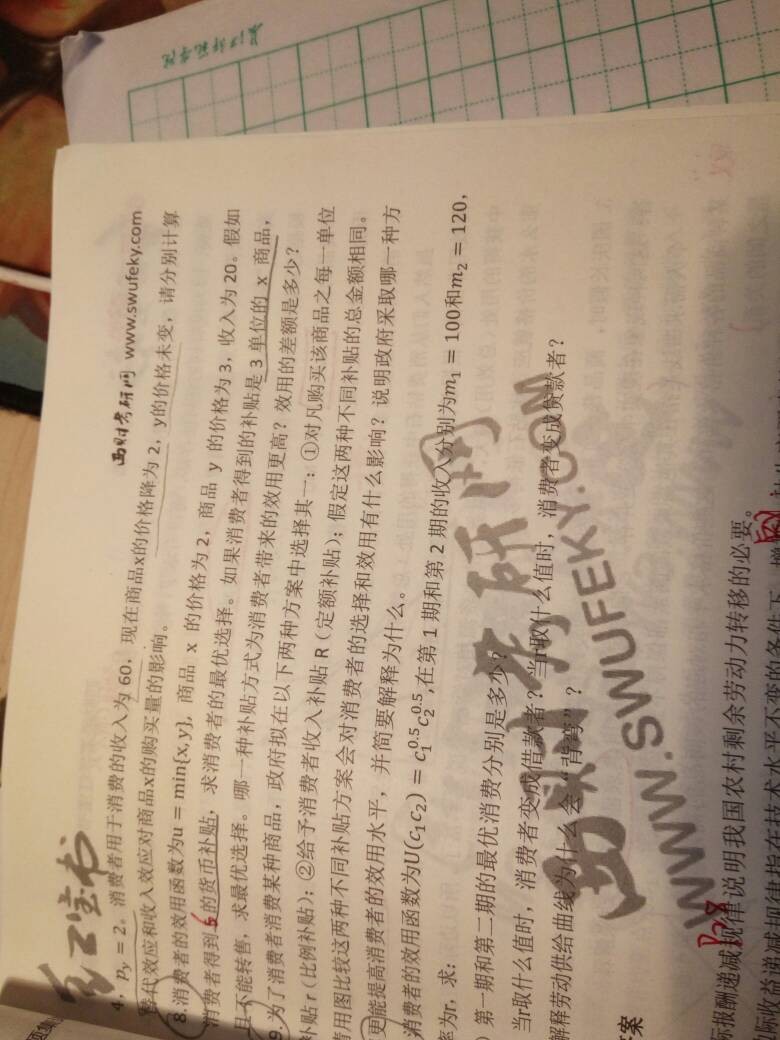 西财考研网 www.swufeky.com
4，p_y = 2。消费者用于消费的收入为 60，现在商品x的价格降为 2，y的价格未变，请分别计算
替代效应和收入效应对商品x的购买量的影响。
8.消费者的效用函数为u = min{x,y}，商品 x 的价格为 2，商品 y 的价格为 3，收入为 20。假如
消费者得到6的货币补贴，求消费者的最优选择。如果消费者得到的补贴是 3 单位的 x 商品，
且不能转售，求最优选择。哪一种补贴方式为消费者带来的效用更高？效用的差额是多少？
9.为了消费者消费某种商品，政府拟在以下两种方案中选择其一：①对凡购买该商品之每一单位
补贴 r（比例补贴）；②给予消费者收入补贴 R（定额补贴）；假定这两种不同补贴的总金额相同。
请用图比较这两种不同补贴方案会对消费者的选择和效用有什么影响？说明政府采取哪一种方
更能提高消费者的效用水平，并简要解释为什么。
消费者的效用函数为U(c₁c₂) = c₁^0.5 c₂^0.5，在第 1 期和第 2 期的收入分别为m₁ = 100和m₂ = 120，
率为r，求：
）第一期和第二期的最优消费分别是多少？
当r取什么值时，消费者变成借款者？当r取什么值时，消费者变成贷款者？
解释劳动供给曲线为什么会“背弯”？
答案
际报酬递减规律说明我国农村剩余劳动力转移的必要。
边际收益递减规律指在技术水平不变的条件下，增
西财考研网
WWW.SWUFEKY.COM